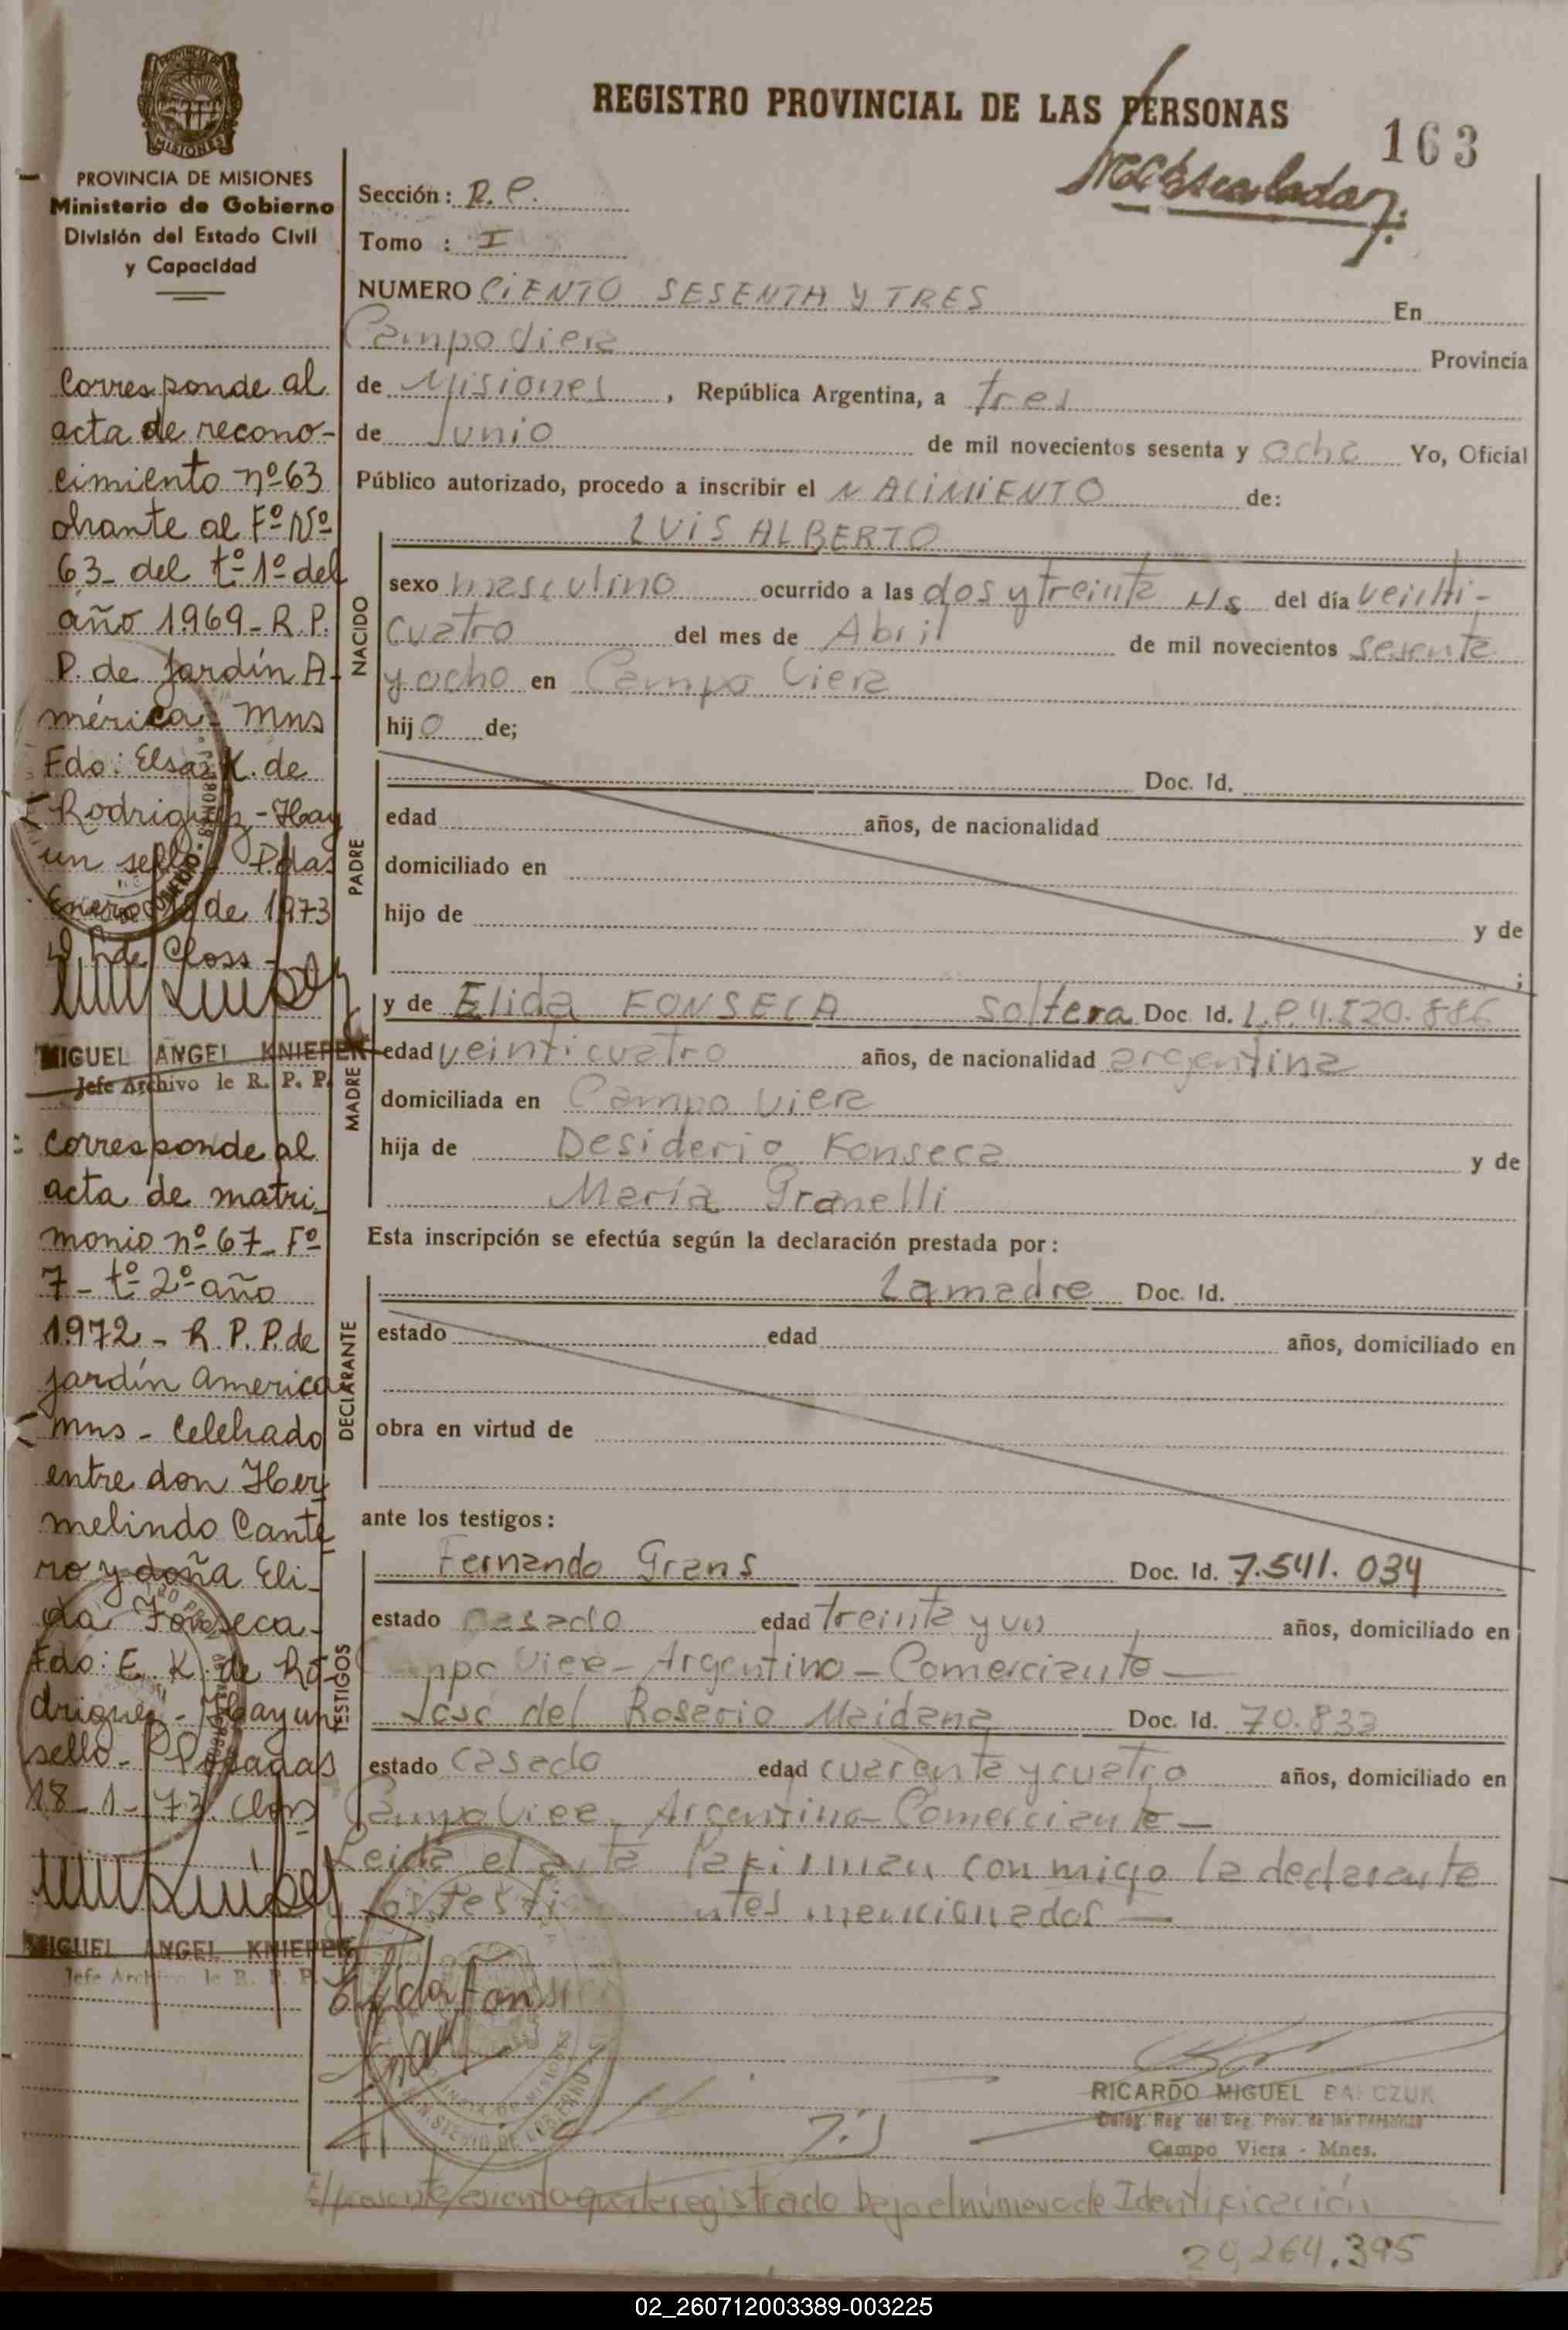 REGISTRO PROVINCIAL DE LAS PERSONAS
163
PROVINCIA DE MISIONES
Ministerio de Gobierno
División del Estado Civil
y Capacidad
Sección: R.P.
Tomo : I
NUMERO CIENTO SESENTA Y TRES En
Campo Viera Provincia
de Misiones, República Argentina, a tres
de Junio de mil novecientos sesenta y ocho Yo, Oficial
Público autorizado, procedo a inscribir el NACIMIENTO de:
NACIDO
LUIS ALBERTO
sexo masculino ocurrido a las dos y treinta Hs del día veinti-
cuatro del mes de Abril de mil novecientos sesenta
y ocho en Campo Viera
hijo de;
PADRE
Doc. Id.
edad años, de nacionalidad
domiciliado en
hijo de y de
;
MADRE
y de Elida FONSECA soltera Doc Id. L.C. 4.520.886
edad veinticuatro años, de nacionalidad argentina
domiciliada en Campo Viera
hija de Desiderio Fonseca y de
María Granelli
Esta inscripción se efectúa según la declaración prestada por:
DECLARANTE
La madre Doc. Id.
estado edad años, domiciliado en
obra en virtud de
ante los testigos:
TESTIGOS
Fernando Grans Doc. Id. 7.541.034
estado casado edad treinta y un años, domiciliado en
Viera - Argentino - Comerciante
José del Rosario Maidana Doc. Id. 70.832
estado casado edad cuarenta y cuatro años, domiciliado en
Campo Viera, Argentino - Comerciante -
Leida el acta la firman conmigo la declarante
mencionados -
Elida Fonseca
RICARDO MIGUEL
Campo Viera - Mnes.
El presente registrado bajo el número de Identificación
20,264.395
Corresponde al
acta de recono-
cimiento nº 63
obrante al Fº Nº
63 - del tº 1º del
año 1969 - R.P.
P. de Jardín A-
mérica - Mns
Fdo: Elsa K. de
Rodriguez - Hay
un sello P/das
Enero de 1973
de Closs -
MIGUEL ANGEL KNIEPER
Jefe Archivo de R. P. P.
Corresponde al
acta de matri-
monio nº 67 - Fº
7 - tº 2º año
1972 - R. P. P. de
jardín america
Mns - Celebrado
entre don Her
melindo Cante
ro y doña Eli-
da Fonseca -
Fdo: E. K. de Ro
driguez - Hay un
sello - Posadas
18-1-73. Closs
MIGUEL ANGEL KNIEPER
Jefe Archivo de R. P. P.
02_260712003389-003225